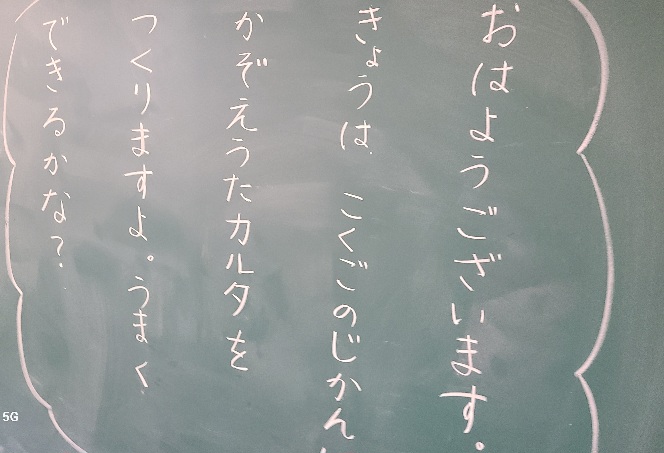 おはようございます。
きょうは、こくごのじかん
かぞえうたカルタを
つくりますよ。うまく
できるかな？
5G